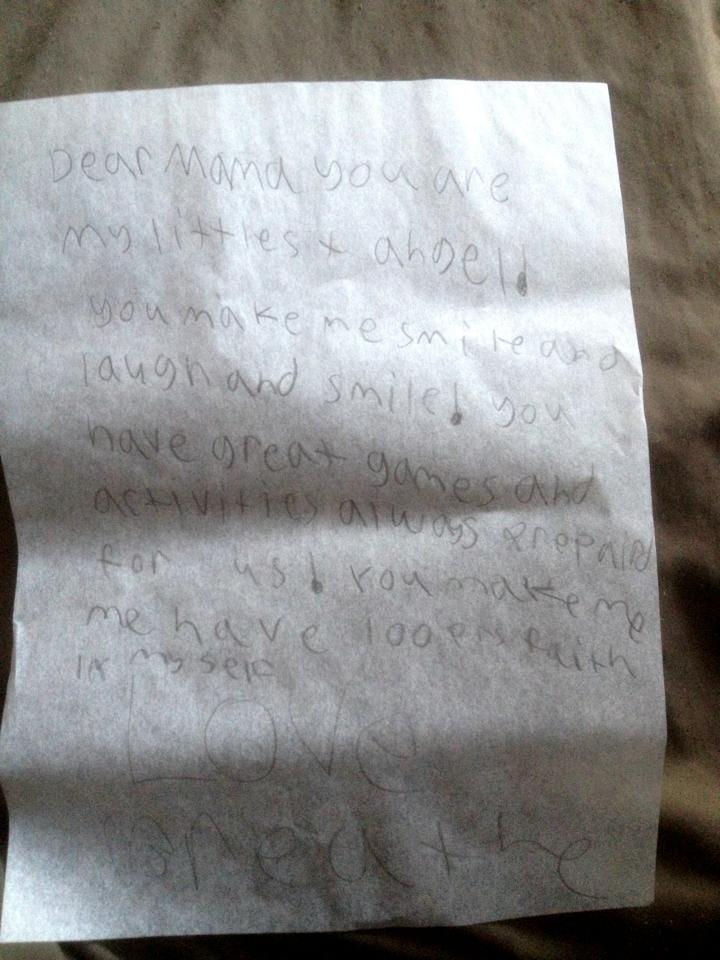 Dear Mama you are
my littlest angel!
you make me smile and
laugh and smile! you
have great games and
activities always prepaird
for us! You make me
me have 100% faith
in my self
Love
Breathe